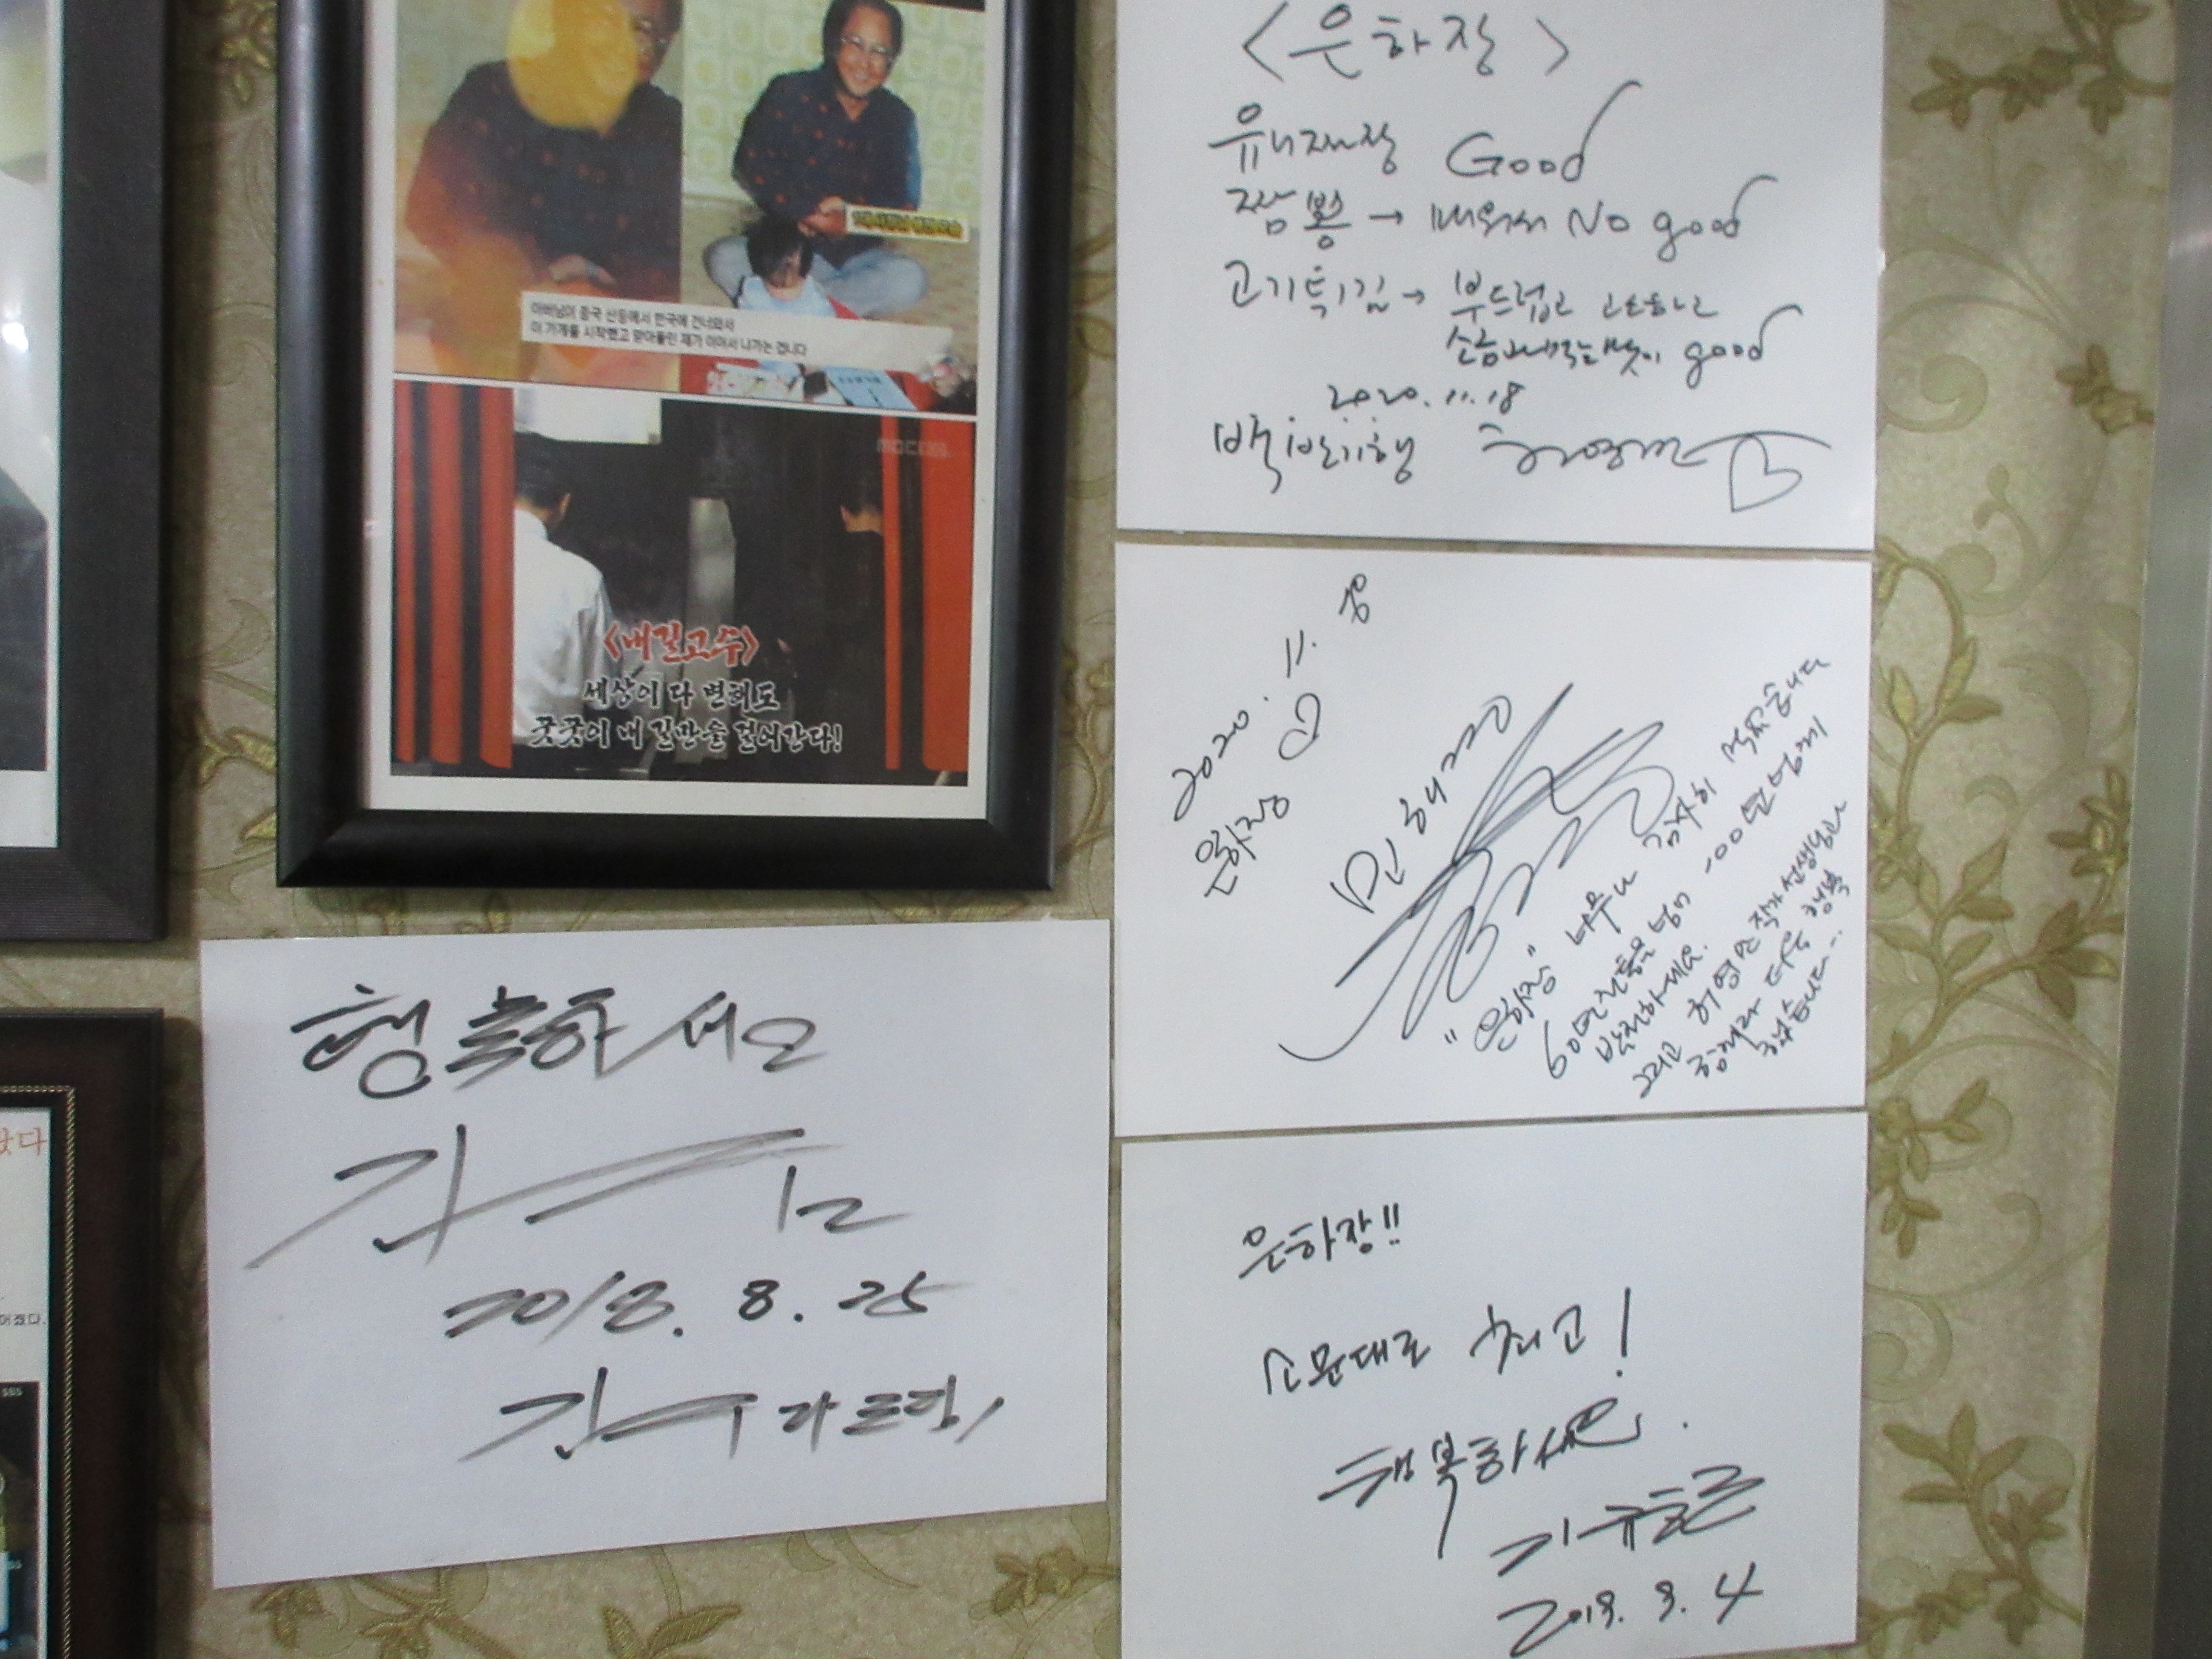 아버님이 중국 산동에서 한국에 건너와서
이 가게를 시작했고 맏아들인 제가 이어서 나가는 겁니다
<내길고수>
세상이 다 변해도
꿋꿋이 내 길만을 걸어간다!
<은하장>
유니짜장 Good
짬뽕 → 매워서 No good
고기튀김 → 부드럽고 고소하고
소금 찍는 맛이 good
2020.11.18
백반기행
2020. 11.
은하장
민해경
"은하장" 너무나 감사히 먹었습니다
60년 전통을 넘어 100년 넘게
발전하세요.
그리고 허영만 작가 선생님과
함께라 더욱 행복
했습니다...
행복하세요
2018. 8. 25
은하장!!
소문대로 최고!
행복하세요.
2019. 3. 4
었다
어졌다.
SBS